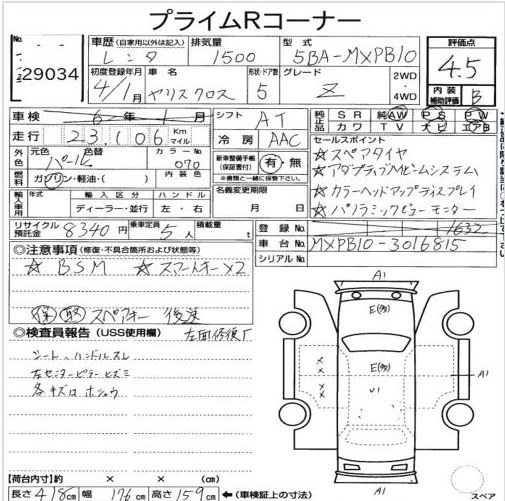 プライムRコーナー
No. 29034
車歴 (自家用以外は記入) レンタ
排気量 1500
型式 5BA-MXPB10
評価点 4.5
初度登録年月 4/1月
車名 ヤリスクロス
形状・ドア数 5
グレード Z
2WD
4WD
内装補助評価 B
車検 6年 1月
シフト AT
純正品 SR 純AW PS PW
カワ TV ナビ エアB
走行 23,106 Km マイル
冷房 AAC
セールスポイント
☆スペアタイヤ
☆アダプティブハイビームシステム
☆カラーヘッドアップディスプレイ
☆パノラミックビューモニター
外色 元色 パール
色替
カラーNo. 070
新車整備手帳(保証書付) 有・無
※書類と一緒に保管下さい。
燃料 ガソリン・軽油・( )
内装色
名義変更期限
月 日
輸入車用 年式
輸入区分 ディーラー・並行
ハンドル 左・右
リサイクル預託金 8340円
乗車定員 5人
積載量
登録No. 1632
車台No. MXPB10-3016815
シリアルNo.
◎注意事項 (修復・不具合箇所および状態等)
☆BSM ☆スマートキー×2
保 取 スペアキー 後送
◎検査員報告 (USS使用欄) 左面修復г
シート、ハンドルスレ
左センターピラーヒズミ
各キズロ ホシュウ
A1
E(多)
E(多)
U1
A1
A1
スペア
【荷台内寸】約 × × (cm)
長さ 418cm 幅 176cm 高さ 159cm ←(車検証上の寸法)